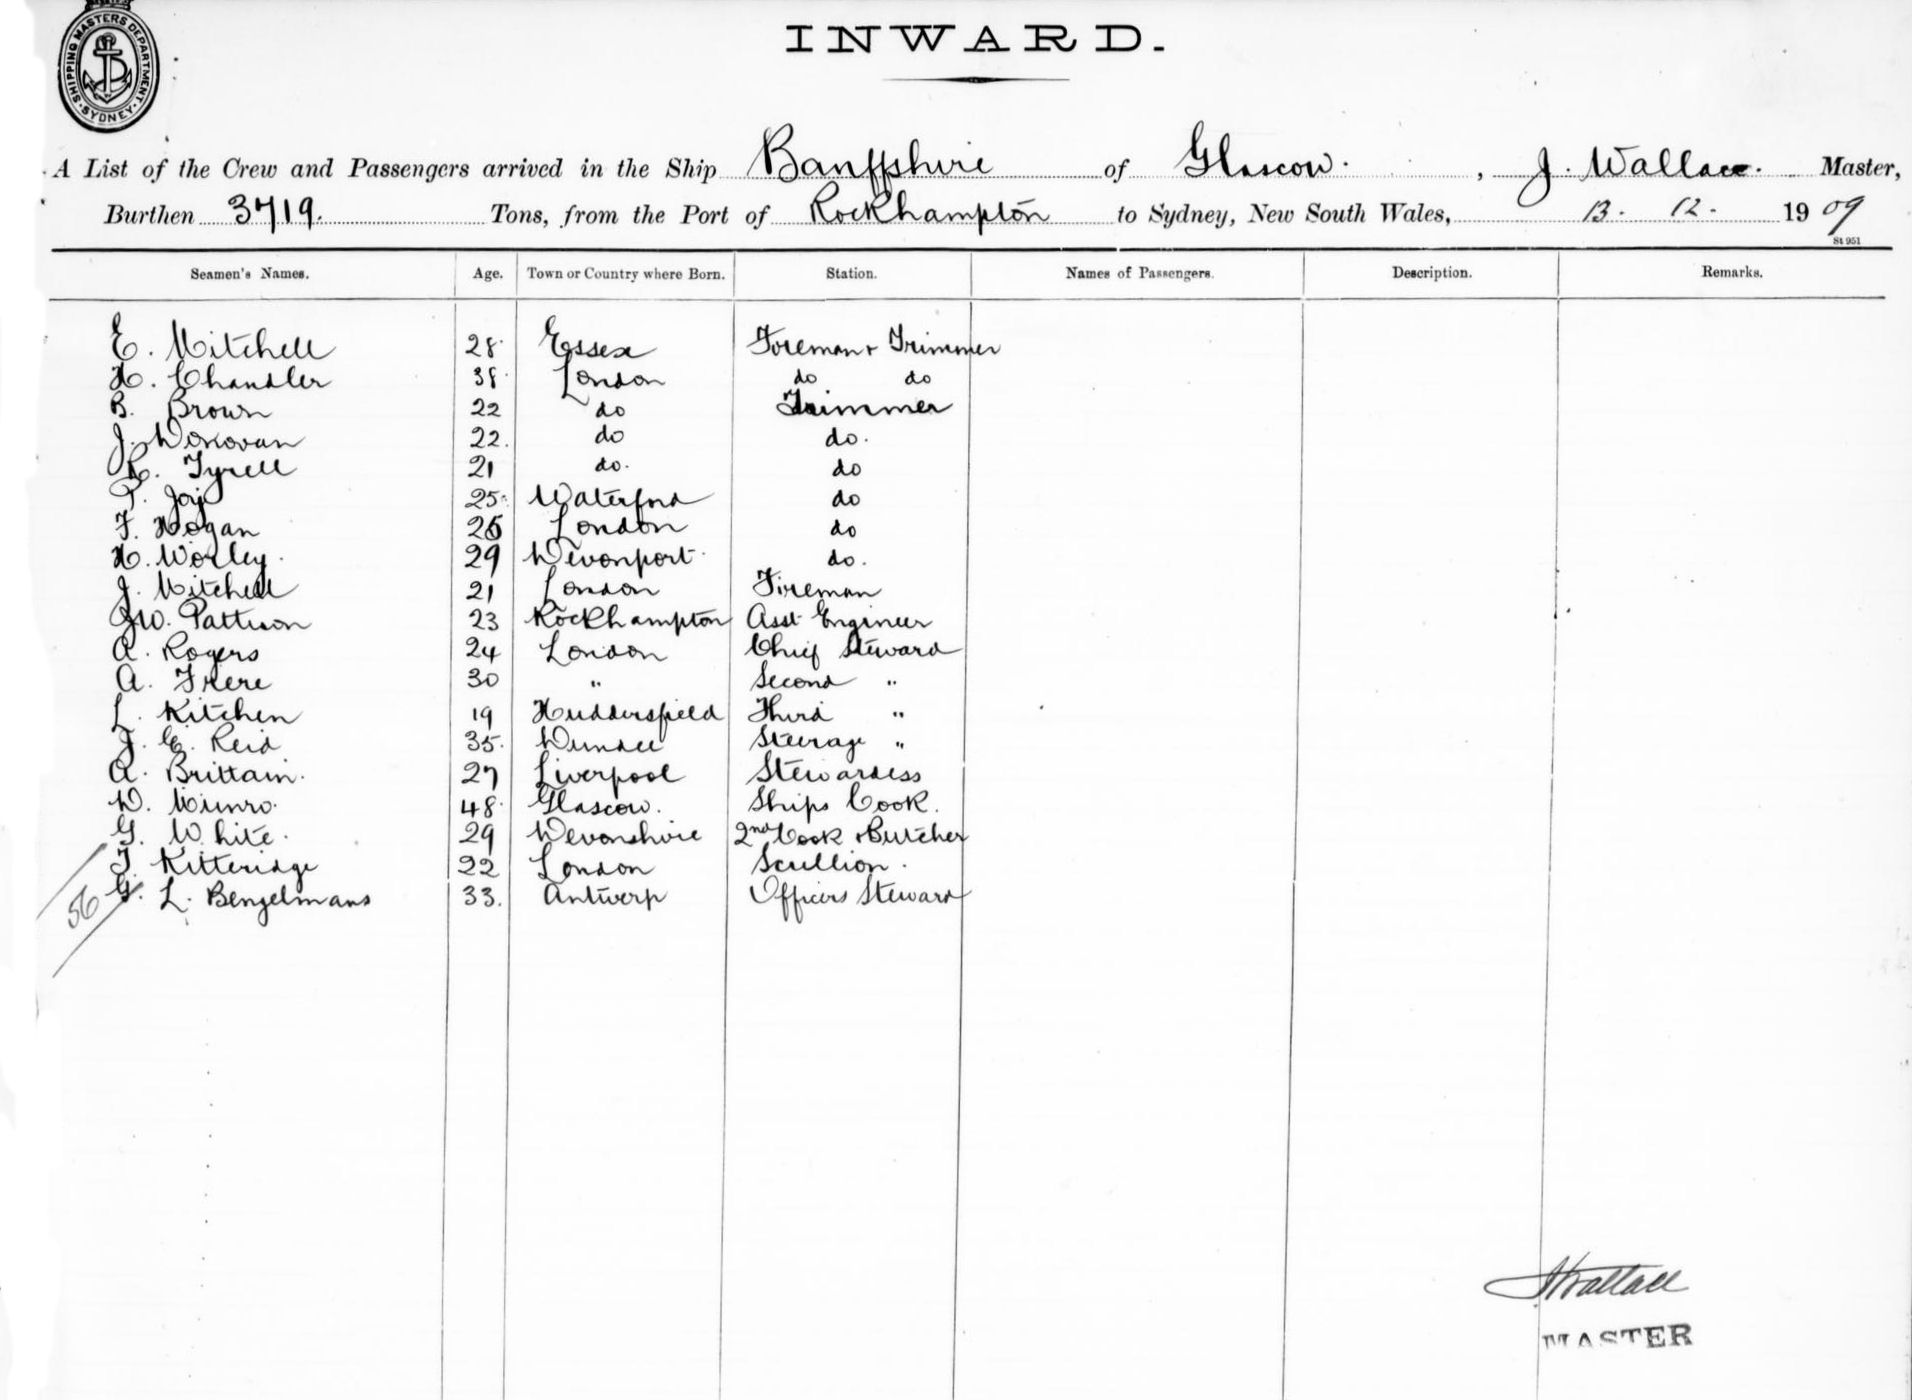 SHIPPING MASTERS DEPARTMENT. SYDNEY
INWARD.
A List of the Crew and Passengers arrived in the Ship Banffshire of Glascow. , J. Wallace. Master,
Burthen 3719. Tons, from the Port of Rockhampton to Sydney, New South Wales, 13. 12. 1909
St 951
Seamen's Names. Age. Town or Country where Born. Station. Names of Passengers. Description. Remarks.
E. Mitchell 28 Essex Foreman & Trimmer
H. Chandler 38 London do do
B. Brown 22 do Trimmer
J. Donovan 22. do do.
R. Tyrell 21 do. do
P. 25 Waterford do
F. Hogan 25 London do
H. Worley. 29 Devonport. do.
J. Mitchell 21 London Fireman
W. Pattison 23 Rockhampton Asst Engineer
A. Rogers 24 London Chief Steward
A. Frere 30 " Second "
L. Kitchen 19 Huddersfield Third "
J. E. Reid 35. Dundee Steerage "
A. Brittain. 27 Liverpool Stewardess
D. Munro. 48 Glascow. Ships Cook.
G. White. 29 Devonshire 2nd Cook & Butcher
T. Kitteridge 22 London Scullion.
G. L. Bengelmans 33. Antwerp Officers Steward
56
JWallace
MASTER